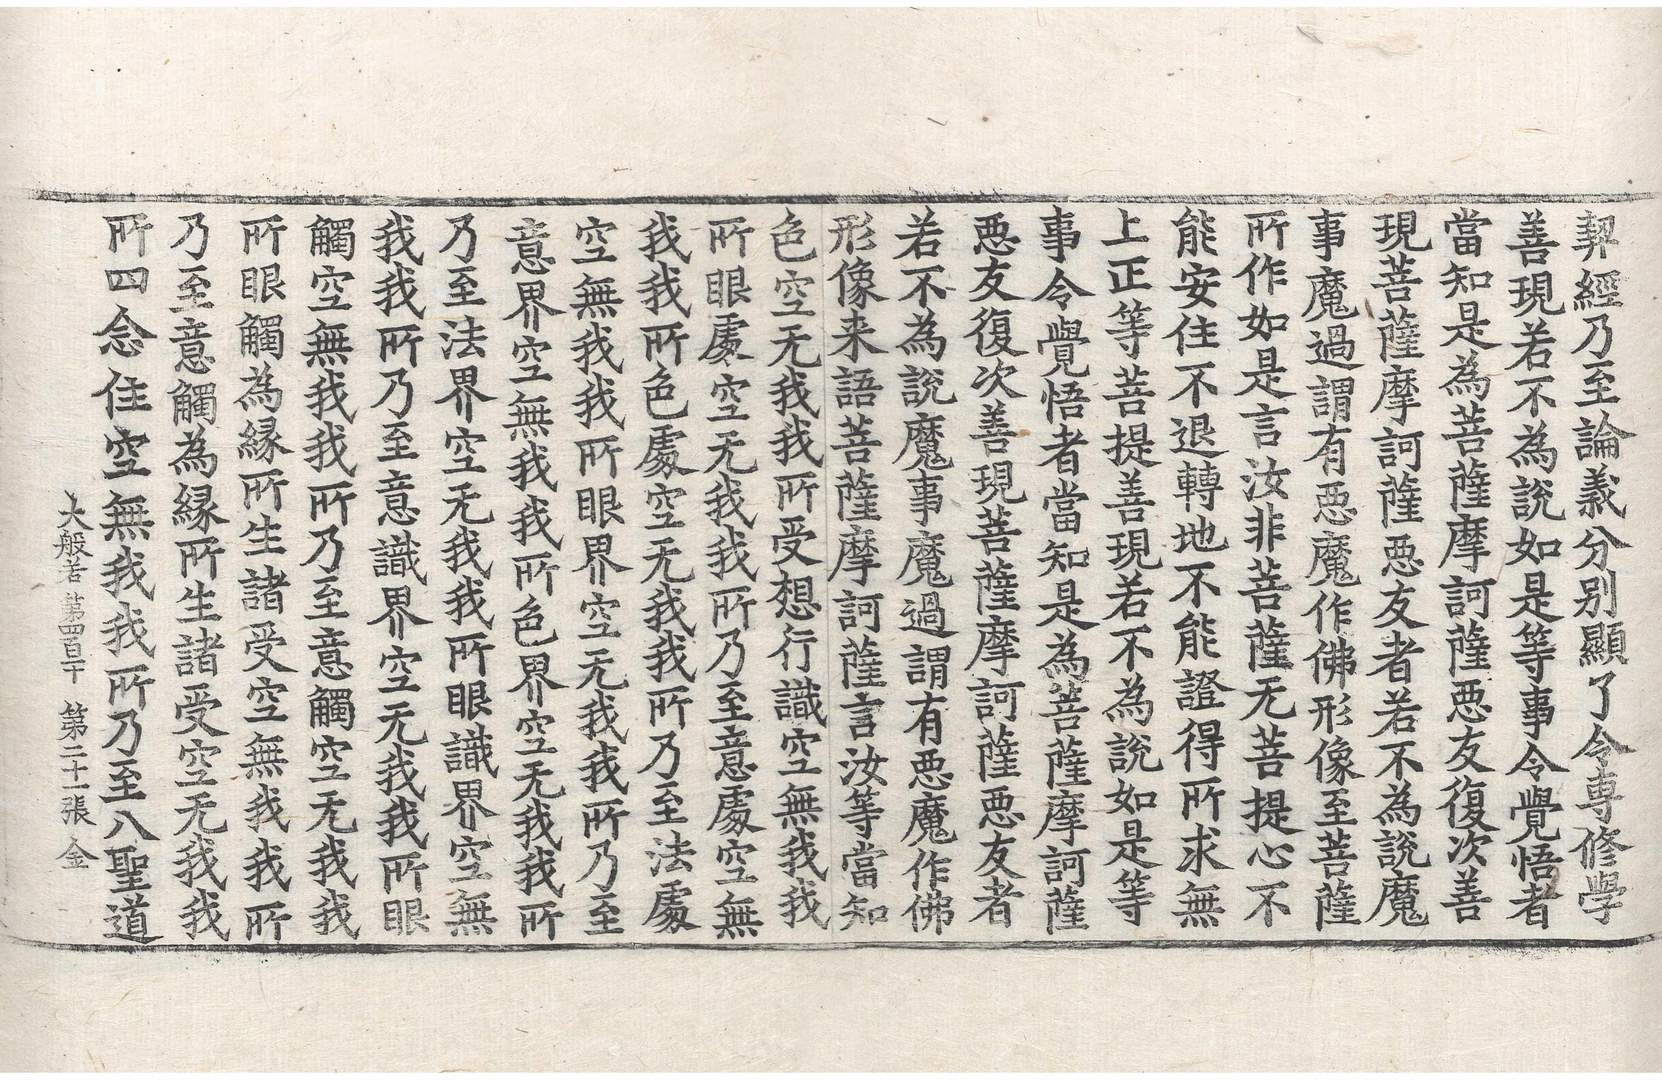 契經乃至論義分别顯了令専修學
善現若不為說如是等事令覺悟者
當知是為菩薩摩訶薩悪友復次善
現菩薩摩訶薩悪友者若不為說魔
事魔過謂有悪魔作佛形像至菩薩
所作如是言汝非菩薩无菩提心不
能安住不退轉地不能證得所求無
上正等菩提善現若不為說如是等
事令覺悟者當知是為菩薩摩訶薩
悪友復次善現菩薩摩訶薩悪友者
若不為說魔事魔過謂有悪魔作佛
形像来語菩薩摩訶薩言汝等當知
色空无我我所受想行識空無我我
所眼處空无我我所乃至意處空無
我我所色處空无我我所乃至法處
空無我我所眼界空无我我所乃至
意界空無我我所色界空无我我所
乃至法界空无我我所眼識界空無
我我所乃至意識界空无我我所眼
觸空無我我所乃至意觸空无我我
所眼觸為縁所生諸受空無我我所
乃至意觸為縁所生諸受空无我我
所四念住空無我我所乃至八聖道
大般若第四百十 第二十一張 金